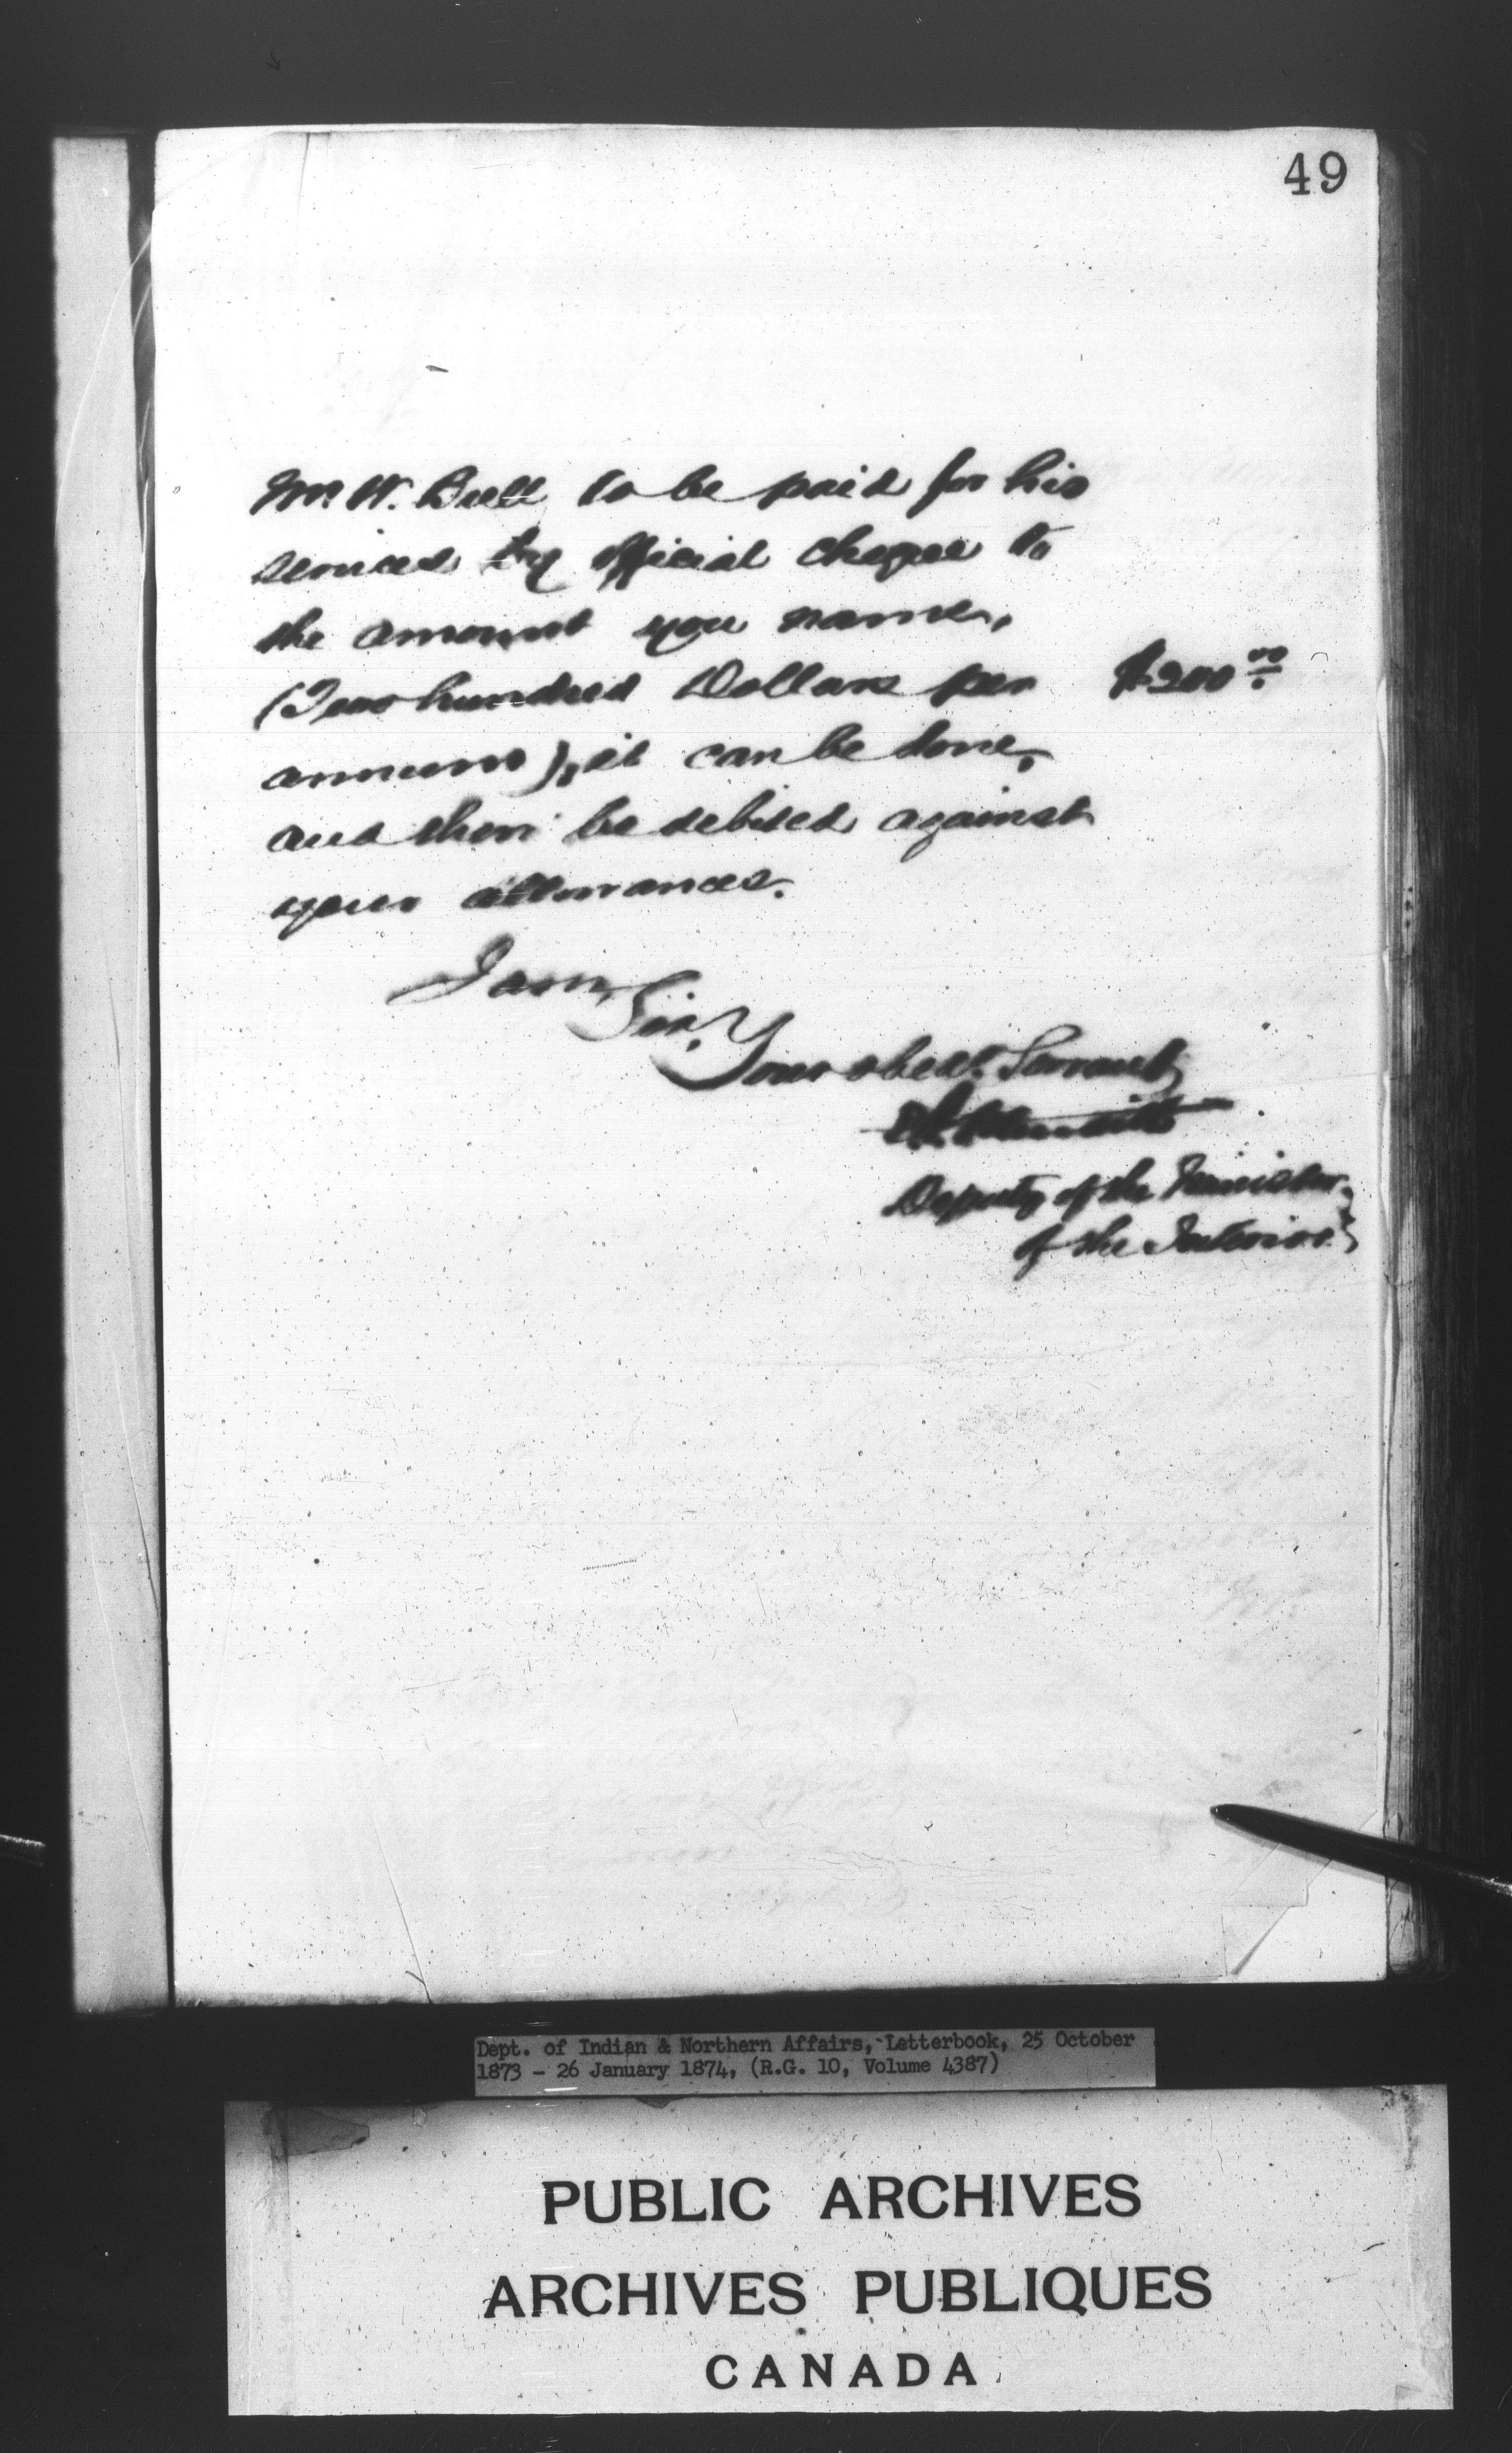 49
Mr. W. Bull to be paid for his
services by official cheque to
the amount you name,
(Two hundred Dollars per $200.00
annum), it can be done,
and then be debited against
your allowances.
I am,
Sir,
Your obedt. Servant,
Deputy of the Minister
of the Interior
Dept. of Indian & Northern Affairs, Letterbook, 25 October
1873 - 26 January 1874, (R.G. 10, Volume 4387)
PUBLIC ARCHIVES
ARCHIVES PUBLIQUES
CANADA